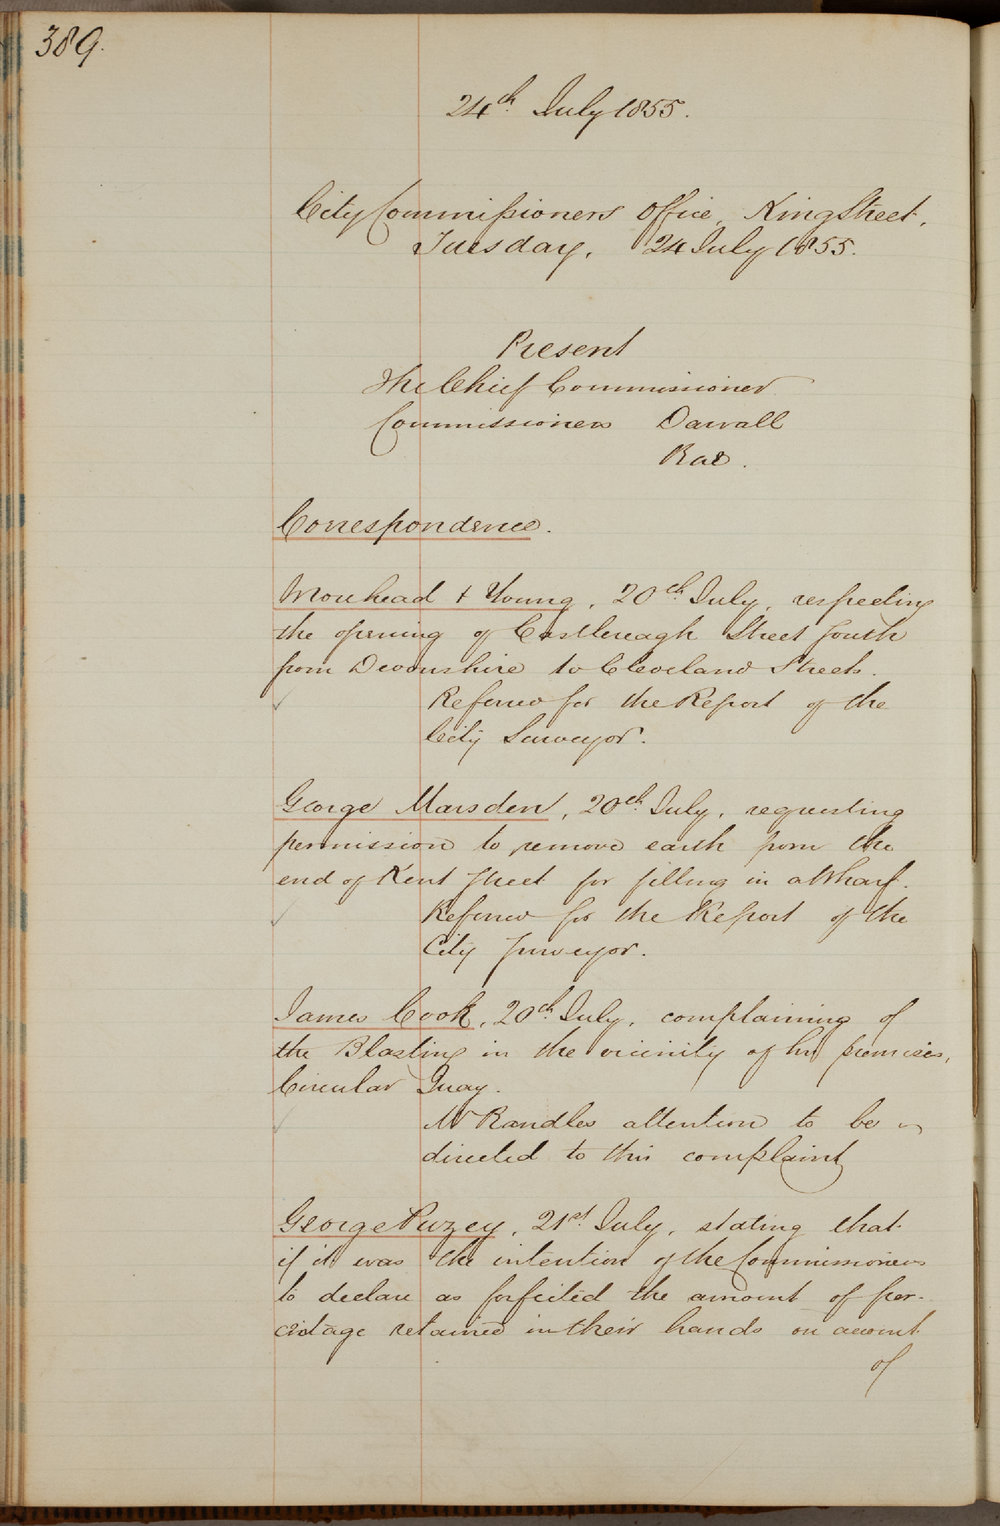 389.
24th July 1855.
City Commissioners Office, King Street,
Tuesday, 24 July 1855.
Present
The Chief Commissioner
Commissioners Darvall
Rae.
Correspondence.
Morehead & Young, 20th July, respecting
the opening of Castlereagh Street South
from Devonshire to Cleveland Streets.
Referred for the Report of the
City Surveyor.
George Marsden, 20th July, requesting
permission to remove earth from the
end of Kent Street for filling in a Wharf.
Referred for the Report of the
City Surveyor.
James Cook, 20th July, complaining of
the Blasting in the vicinity of his premises,
Circular Quay.
Mr Randles attention to be
directed to this complaint
George Puzey, 21st July, stating that
if it was the intention of the Commissioners
to declare as forfeited the amount of per-
centage retained in their hands on account
of